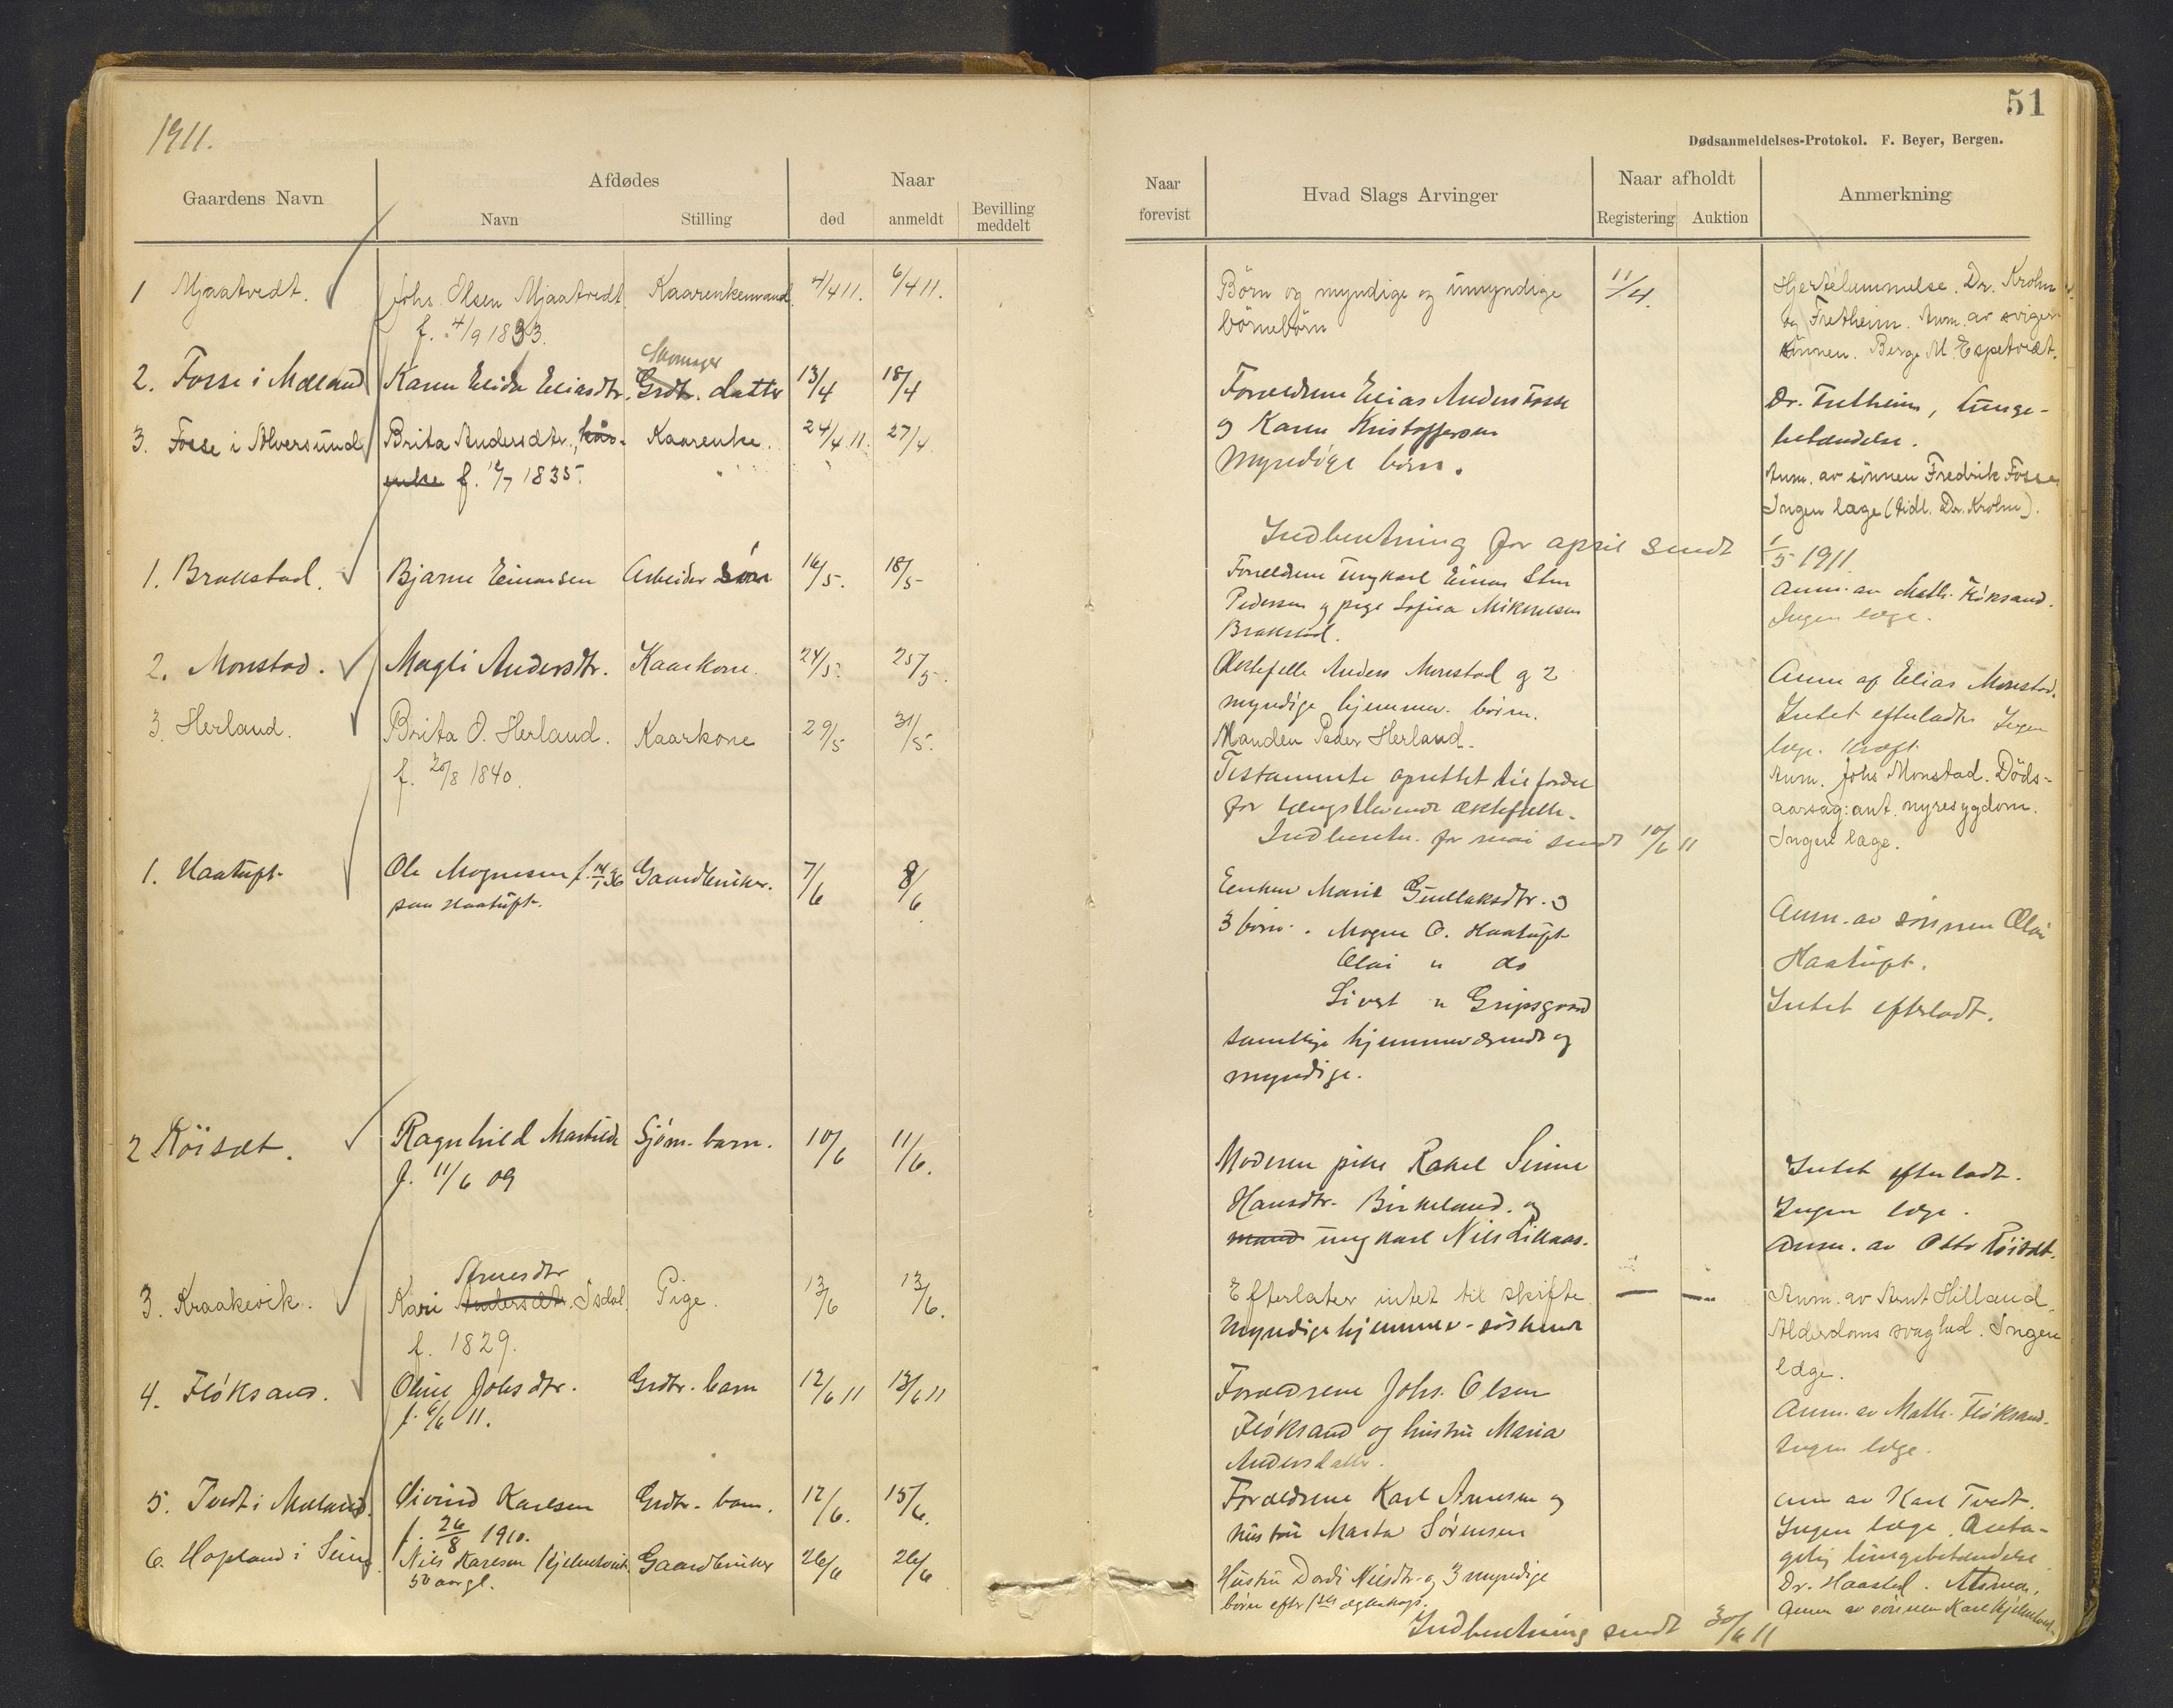 1911.
51
Dødsanmeldelses-Protokol. F. Beyer, Bergen.
Gaardens Navn
Afdødes
Navn
Stilling
Naar
død
anmeldt
Bevilling
meddelt
Naar
forevist
Hvad Slags Arvinger
Naar afholdt
Registering
Auktion
Anmerkning
1 Mjaatvedt. Johs. Olsen Mjaatvedt Kaarenkemand. 4/4 11. 6/4 11. Børn og myndige og umyndige 11/4. Hjertelammelse. Dr. Krohn
f. 4/9 1833. børnebørn og Fretheim. Anm. av sviger
sønnen. Berge M. Espetvedt.
2. Fosse i Mæland Karen Elida Eliasdtr. Grdtr. datter 13/4 18/4 Forældrene Elias Anders Fosse Dr. Fretheim, lunge-
og Karen Kristoffersen betændelse.
3. Fosse i Alversund Brita Andersdtr. Kaarenke. 24/4 11. 27/4 Myndige børn. Anm. av sønnen Fredrik Fosse
f. 12/7 1835. Ingen læge (tidl. Dr. Krohn).
Indberetning for april sendt 1/5 1911.
1. Brakstad. Bjarne Einarsen Arbeider søn 16/5. 18/5 Forældrene ungkarl Einar Sten Anm. av Math. Fløksand.
Pedersen og pige Sofia Mikkelsen Ingen læge.
Brakstad.
2. Monstad. Magli Andersdtr. Kaarkone. 24/5. 25/5. Ektefelle Anders Monstad og 2 Anm af Elias Monstad.
myndige hjemmev. børn. Intet efterladt. Ingen
læge. Kræft.
3. Herland. Brita O. Herland. Kaarkone 29/5 31/5. Manden Peder Herland. Anm. Johs Monstad. Døds-
f. 20/8 1840. Testamente oprettet til fordel aarsag: ant. nyresygdom.
for længstlevende ektefelle. Ingen læge.
Indberetn. for mai sendt 10/6 11
1. Haatuft Ole Mognesen f. 14/1 36 Gaardbruker. 7/6 8/6 Enken Marie Gullaksdtr. og Anm. av sønnen Olai
paa Haatuft. 3 børn. Mogne O. Haatuft Haatuft.
Olai " do Intet efterladt.
Sivert " Gripsgaard
samtlige hjemmeværende og
myndige.
2 Röisæt. Ragnhild Mathilde Sjøm. barn. 10/6 11/6. Moderen pike Rakel Sirine Intet efterladt.
f. 11/6 09 Hansdtr. Birkeland. og Ingen læge.
mand ungkarl Nils Lillaas. Anm. av Otto Röisæt.
3. Kraakevik. Kari Andersdtr. Isdal Pige. 13/6 13/6. Efterlater intet til skifte — — Anm. av Arnt Hilland.
Arnesdtr
f. 1829. Myndige hjemmev. søskende Alderdoms svaghed. Ingen
læge.
4. Fløksand. Oline Johsdtr. Grdtr. barn 12/6 11 13/6 11 Forældrene Johs. Olsen Anm. av Math. Fløksand.
f. 6/6 11. Fløksand og hustru Maria Ingen læge.
Andersdatter.
5. Tvedt i Mæland. Øivind Karlsen Grdtr. barn. 12/6. 15/6. Forældrene Karl Arnesen og Anm av Karl Tvedt.
f. 26/8 1910. hustru Marta Sørensen Ingen læge. Anta-
gelig lungebetændelse
6. Hopland i Seim Nils Karlsen Gaardbruker 26/6 26/6 Hustru Dordi Nilsdtr. og 3 myndige Dr. Haasted. Astma.
50 aar gl. børn efter 1ste egteskap. Anm av sønnen Karl
Indberetning sendt 30/6 11